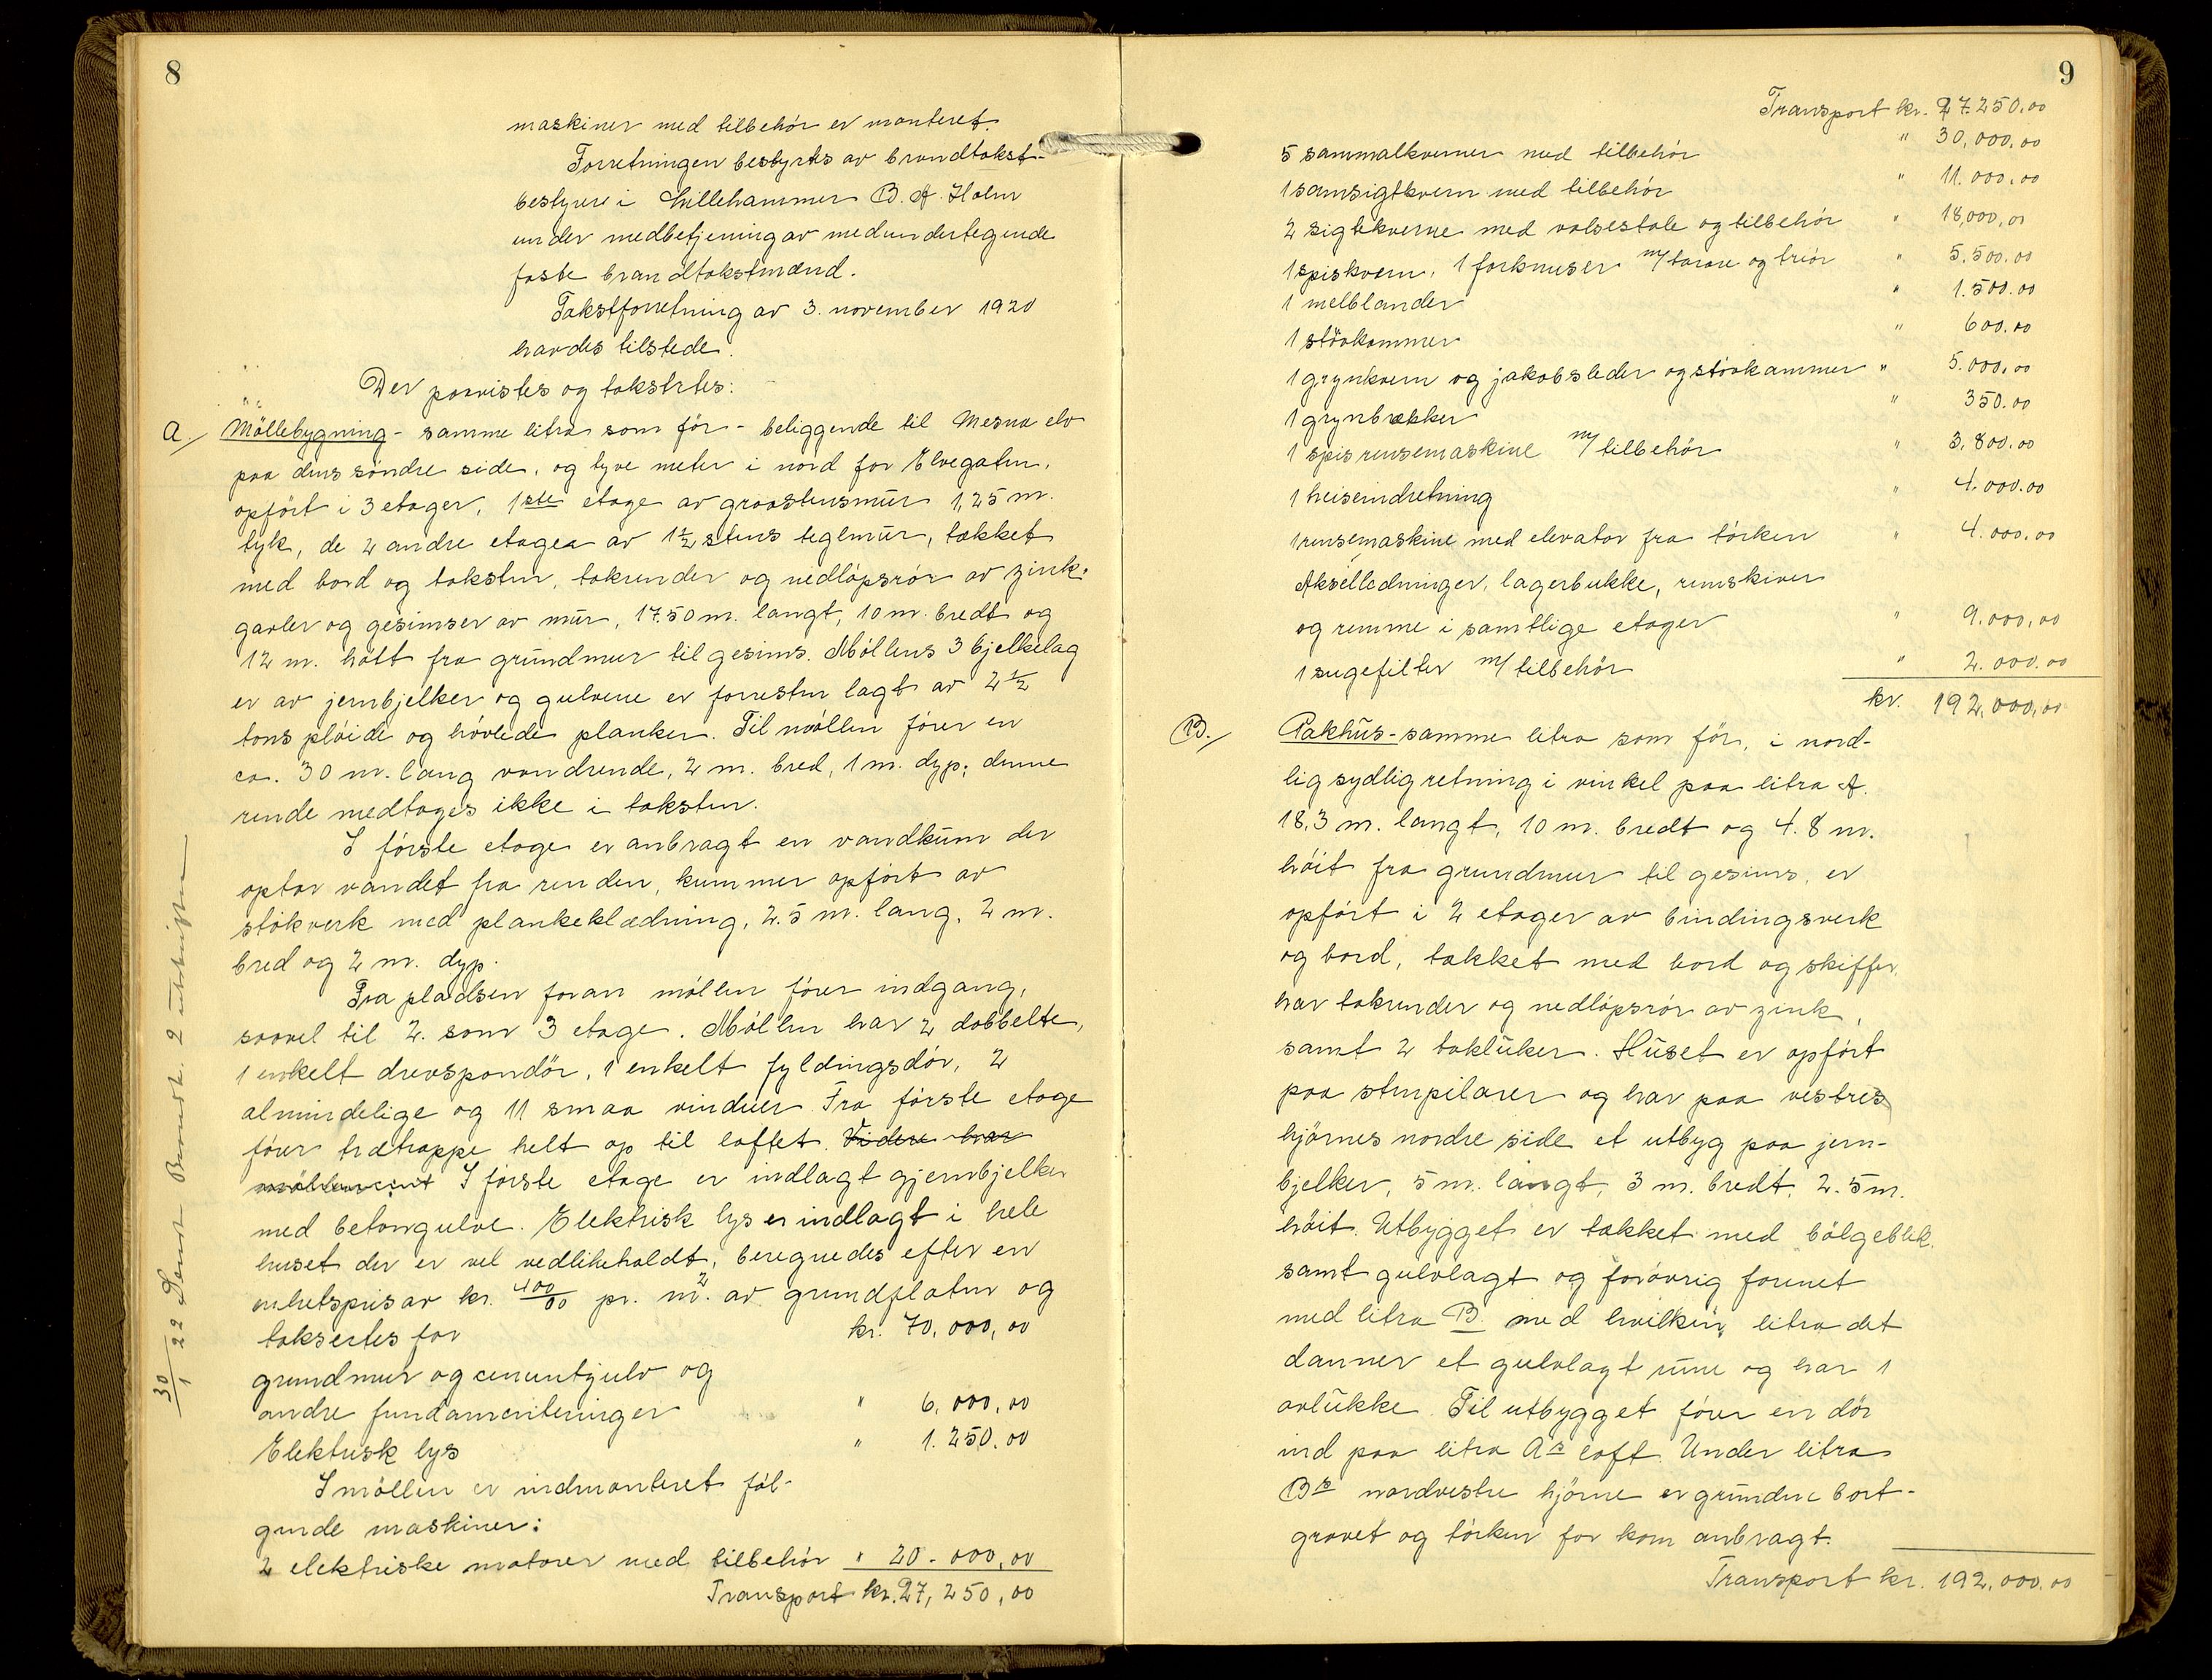 8
maskiner med tilbehör er monteret.
Forretningen bestyrtes av brandtakst-
bestyrer i Lillehammer B. A. Holm
under medbetjening av medundertegnede
faste brandtakstmænd.
Takstforretning av 3. november 1920
havdes tilstede.
Der paavistes og takstrtes:
a/ Möllebygning - samme litra som för - beliggende til Mesna elv
paa dens söndre side, og tyve meter i nord for Elvegaten,
opfört i 3 etager, 1ste etage av graastensmur 1,25 m.
tyk, de 2 andre etager av 1½ stens teglmur, tækket
med bord og taksten, takrender og nedlöpsrör av zink,
gavler og gesimser av mur, 17.50 m. langt, 10 m. bredt og
12 m. höit fra grundmur til gesims. Möllens 3 bjelkelag
er av jernbjelker og gulvene er forresten lagt av 2½
toms plöide og hövlede planker. Til möllen förer en
ca. 30 m. lang vandrende, 2 m. bred, 1 m. dyp; denne
rende medtages ikke i taksten.
I förste etage er anbragt en vandkum der
optar vandet fra renden, kummer opfört av
stökverk med plankeklædning, 2.5 m. lang, 2 m.
bred og 2 m. dyp.
Fra pladsen foran möllen förer indgang,
saavel til 2. som 3 etage. Möllen har 2 dobbelte,
1 enkelt drevspondör, 1 enkelt fyldingsdör, 2
almindelige og 11 smaa vinduer. Fra förste etage
förer trætrappe helt op til loftet. Videre har
I förste etage er indlagt gjernbjelker
med betongulve. Elektrisk lys er indlagt i hele
huset der er vel vedlikeholdt, beregnedes efter en
enhetspris av kr. 400/00 pr. m². av grundflaten og
taksertes for kr. 70,000,00
grundmur og cementgulv og
andre fundamenteringer " 6,000,00
Elektrisk lys " 1.250.00
I möllen er indmonteret föl-
gende maskiner:
2 elektriske motorer med tilbehör " 20-000,00
Transport kr. 97,250,00
30/1 22 Sendt Brandk. 2 utskrifter
9
Transport kr. 97.250,00
5 sammalkverner med tilbehör " 30,000,00
1 samsigtkvern med tilbehör " 11.000,00
2 sigtekverne med valsestole og tilbehör " 18,000,00
1 spiskvern, 1 forknuser m/ tarare og triör " 5.500.00
1 melblander " 1.500.00
1 stövkammer " 600.00
1 grynkvern og jakobsleder og stövkammer " 5.000,00
1 grynbrækker " 350.00
1 spisrensemaskine m/ tilbehör " 3,800.00
1 heiseindretning " 4.000.00
1 rensemaskine med elevator fra törken " 4.000,00
Akselledninger, lagerbukke, remskiver
og remme i samtlige etager " 9.000,00
1 sugefilter m/ tilbehör " 2.000.00
kr. 192,000,00
B./ Pakhus - samme litra som för, i nord-
lig sydlig retning i vinkel paa litra A.
18,3 m. langt, 10 m. bredt og 4.8 m.
höit fra grundmur til gesims, er
opfört i 2 etager av bindingsverk
og bord, tækket med bord og skiffer,
har takrender og nedlöpsrör av zink,
samt 2 takluker. Huset er opfört
paa stenpilarer og har paa vestres
hjörnes nordre side et utbyg paa jern-
bjelker, 5 m. langt, 3 m. bredt, 2.5 m.
höit. Utbygget er tækket med bölgeblik,
samt gulvlagt og forövrig forenet
med litra B. med hvilken litra det
danner et gulvlagt rum og har 1
avlukke. Til utbygget förer en dör
ind paa litra As loft. Under litra
Bs nordvestre hjörne er grunden bort-
gravet og törken for korn anbragt.
Transport kr. 192,000.00